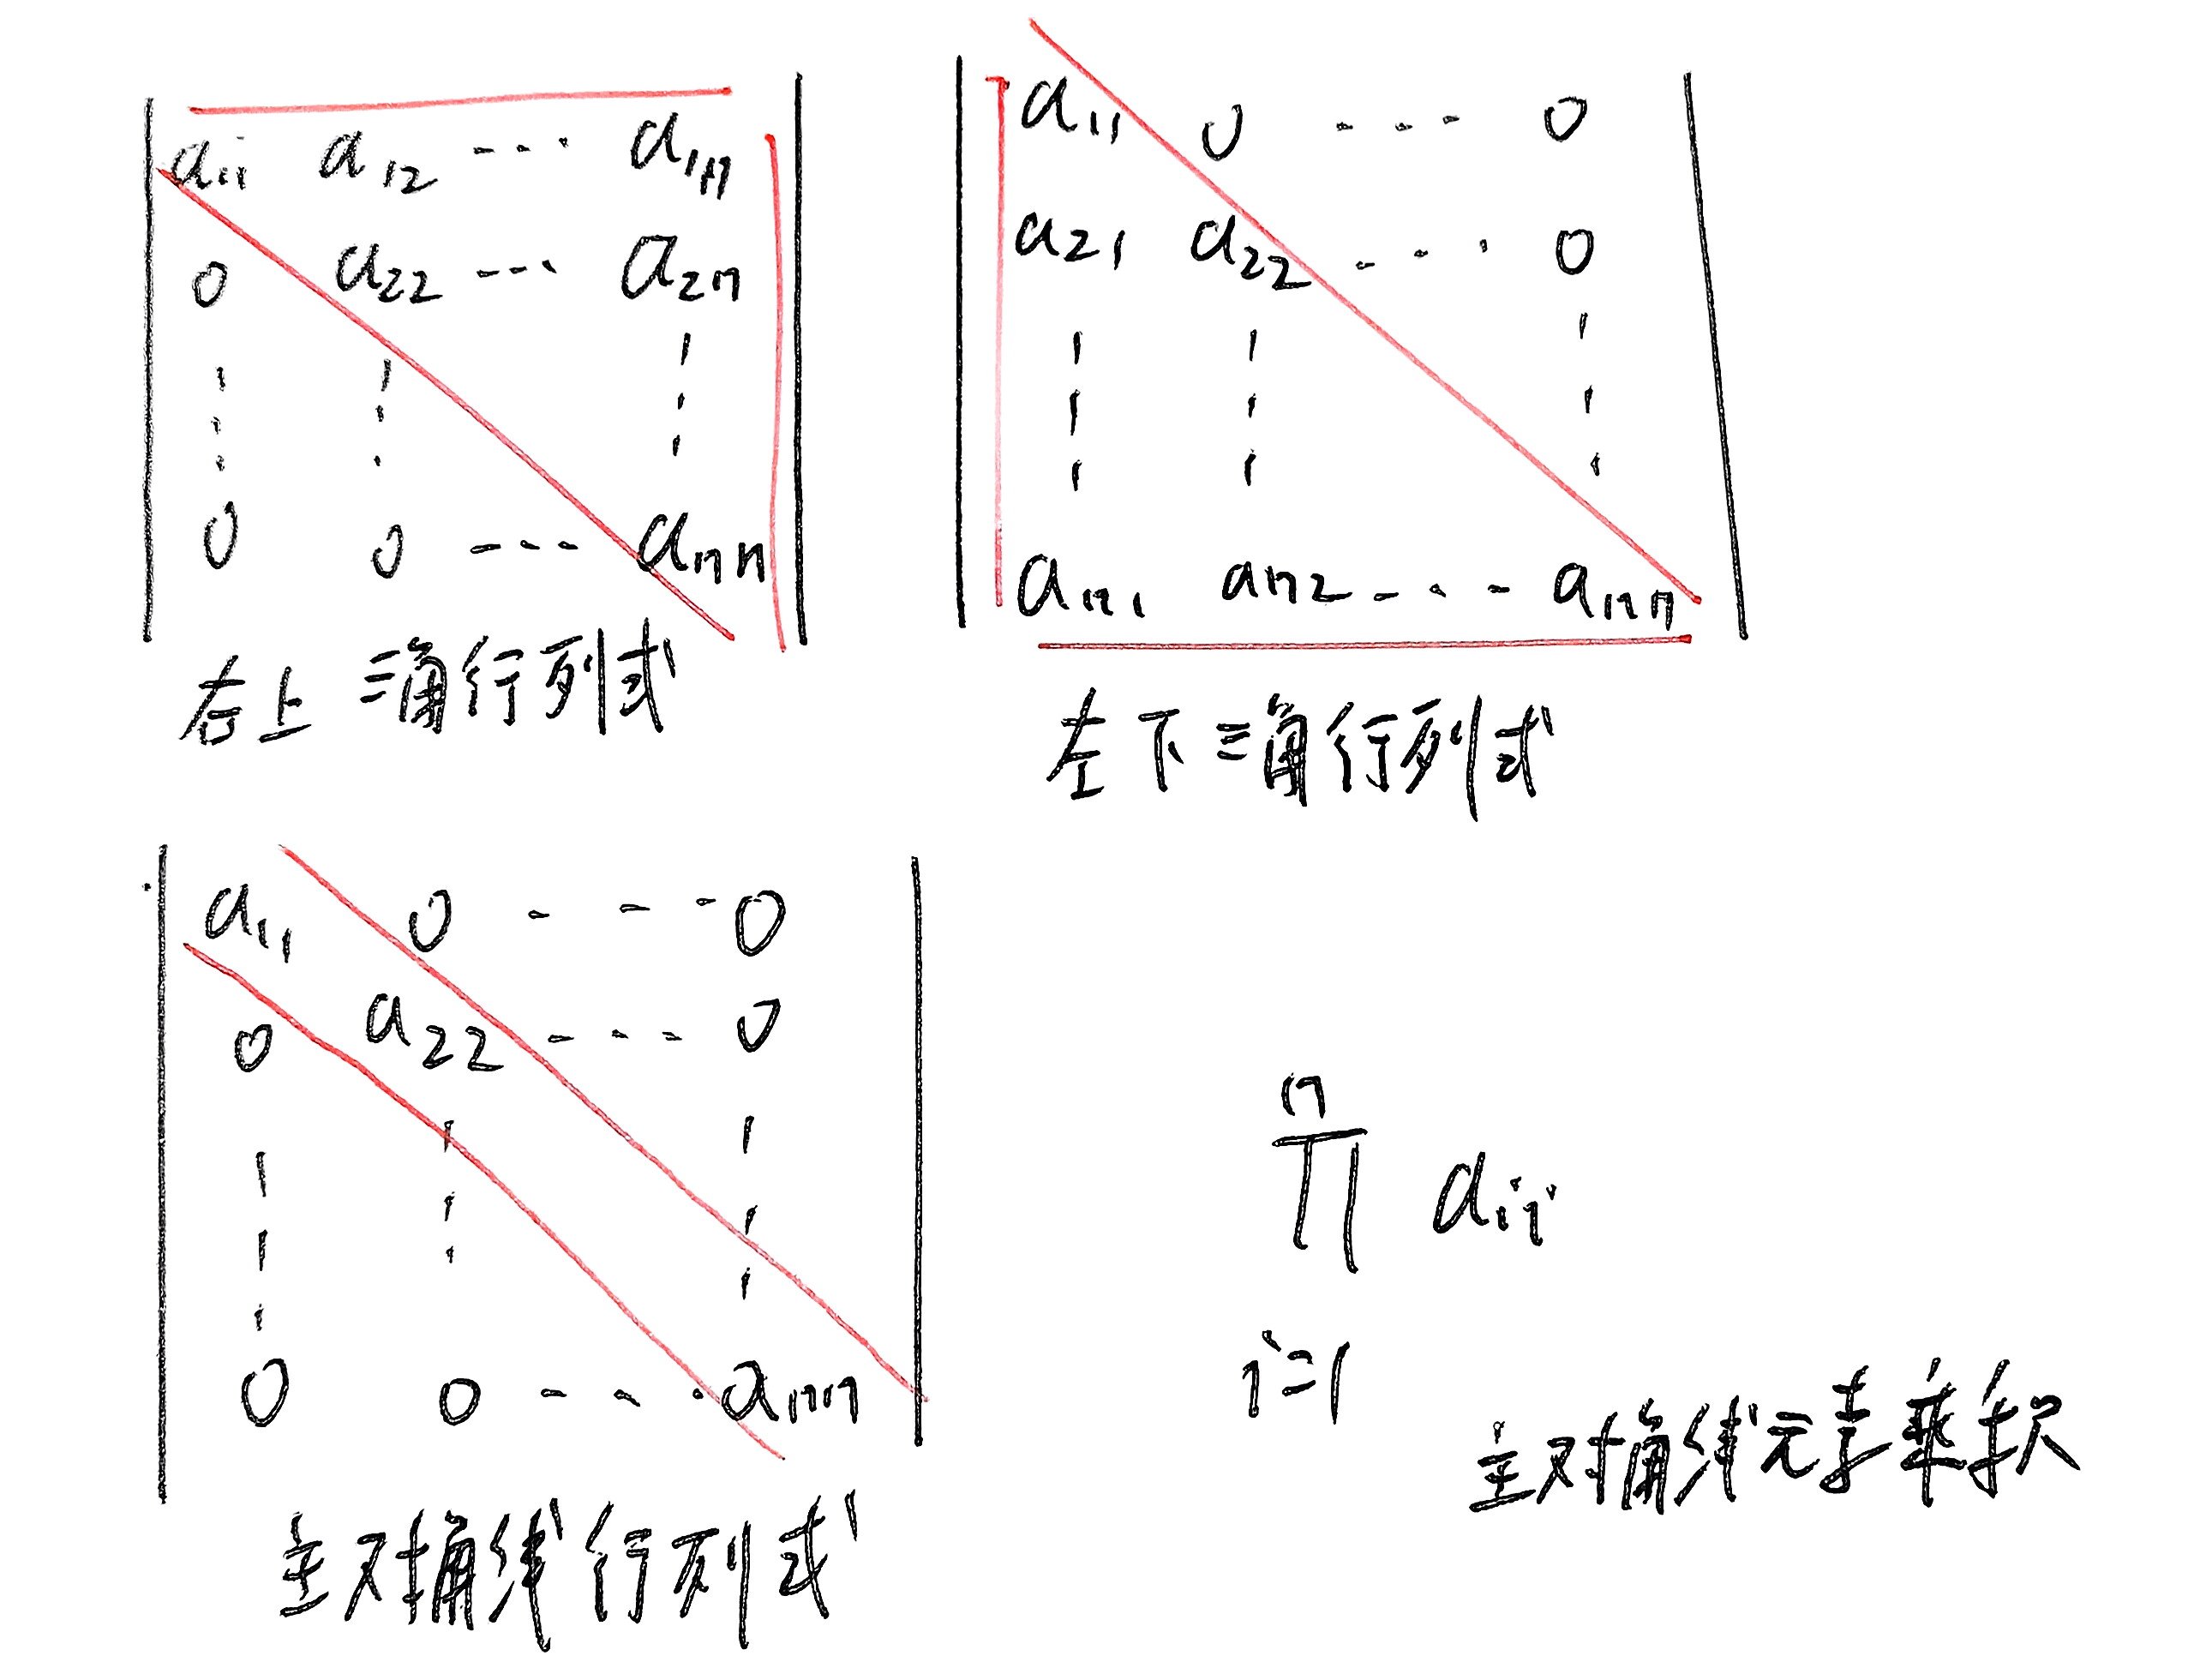 a11 a12 --- a1n
0 a22 --- a2n
0 0 --- ann
右上三角行列式
a11 0 --- 0
a21 a22 --- 0
an1 an2 --- ann
左下三角行列式
a11 0 --- 0
0 a22 --- 0
0 0 --- ann
主对角线行列式
n
∏ aii
i=1
主对角线元素乘积